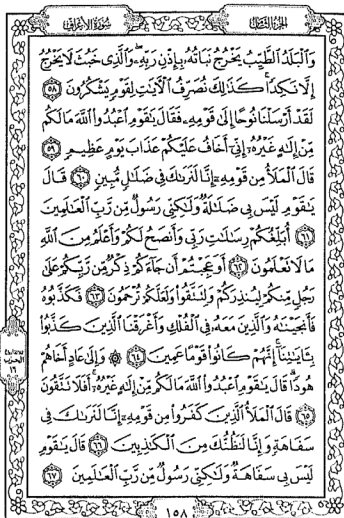 الجزء الثامن
سورة الأعراف
وَٱلْبَلَدُ ٱلطَّيِّبُ يَخْرُجُ نَبَاتُهُۥ بِإِذْنِ رَبِّهِۦ وَٱلَّذِى خَبُثَ لَا يَخْرُجُ
إِلَّا نَكِدًا كَذَٰلِكَ نُصَرِّفُ ٱلْءَايَٰتِ لِقَوْمٍ يَشْكُرُونَ ٥٨
لَقَدْ أَرْسَلْنَا نُوحًا إِلَىٰ قَوْمِهِۦ فَقَالَ يَٰقَوْمِ ٱعْبُدُوا۟ ٱللَّهَ مَا لَكُم
مِّنْ إِلَٰهٍ غَيْرُهُۥٓ إِنِّىٓ أَخَافُ عَلَيْكُمْ عَذَابَ يَوْمٍ عَظِيمٍ ٥٩
قَالَ ٱلْمَلَأُ مِن قَوْمِهِۦٓ إِنَّا لَنَرَىٰكَ فِى ضَلَٰلٍ مُّبِينٍ ٦٠ قَالَ
يَٰقَوْمِ لَيْسَ بِى ضَلَٰلَةٌ وَلَٰكِنِّى رَسُولٌ مِّن رَّبِّ ٱلْعَٰلَمِينَ
٦١ أُبَلِّغُكُمْ رِسَٰلَٰتِ رَبِّى وَأَنصَحُ لَكُمْ وَأَعْلَمُ مِنَ ٱللَّهِ
مَا لَا تَعْلَمُونَ ٦٢ أَوَعَجِبْتُمْ أَن جَآءَكُمْ ذِكْرٌ مِّن رَّبِّكُمْ عَلَىٰ
رَجُلٍ مِّنكُمْ لِيُنذِرَكُمْ وَلِتَتَّقُوا۟ وَلَعَلَّكُمْ تُرْحَمُونَ ٦٣ فَكَذَّبُوهُ
فَأَنجَيْنَٰهُ وَٱلَّذِينَ مَعَهُۥ فِى ٱلْفُلْكِ وَأَغْرَقْنَا ٱلَّذِينَ كَذَّبُوا۟
بِـَٔايَٰتِنَآ إِنَّهُمْ كَانُوا۟ قَوْمًا عَمِينَ ٦٤ ۞ وَإِلَىٰ عَادٍ أَخَاهُمْ
هُودًا قَالَ يَٰقَوْمِ ٱعْبُدُوا۟ ٱللَّهَ مَا لَكُم مِّنْ إِلَٰهٍ غَيْرُهُۥٓ أَفَلَا تَتَّقُونَ
٦٥ قَالَ ٱلْمَلَأُ ٱلَّذِينَ كَفَرُوا۟ مِن قَوْمِهِۦٓ إِنَّا لَنَرَىٰكَ فِى
سَفَاهَةٍ وَإِنَّا لَنَظُنُّكَ مِنَ ٱلْكَٰذِبِينَ ٦٦ قَالَ يَٰقَوْمِ
لَيْسَ بِى سَفَاهَةٌ وَلَٰكِنِّى رَسُولٌ مِّن رَّبِّ ٱلْعَٰلَمِينَ ٦٧
الحزب
١٦
١٥٨